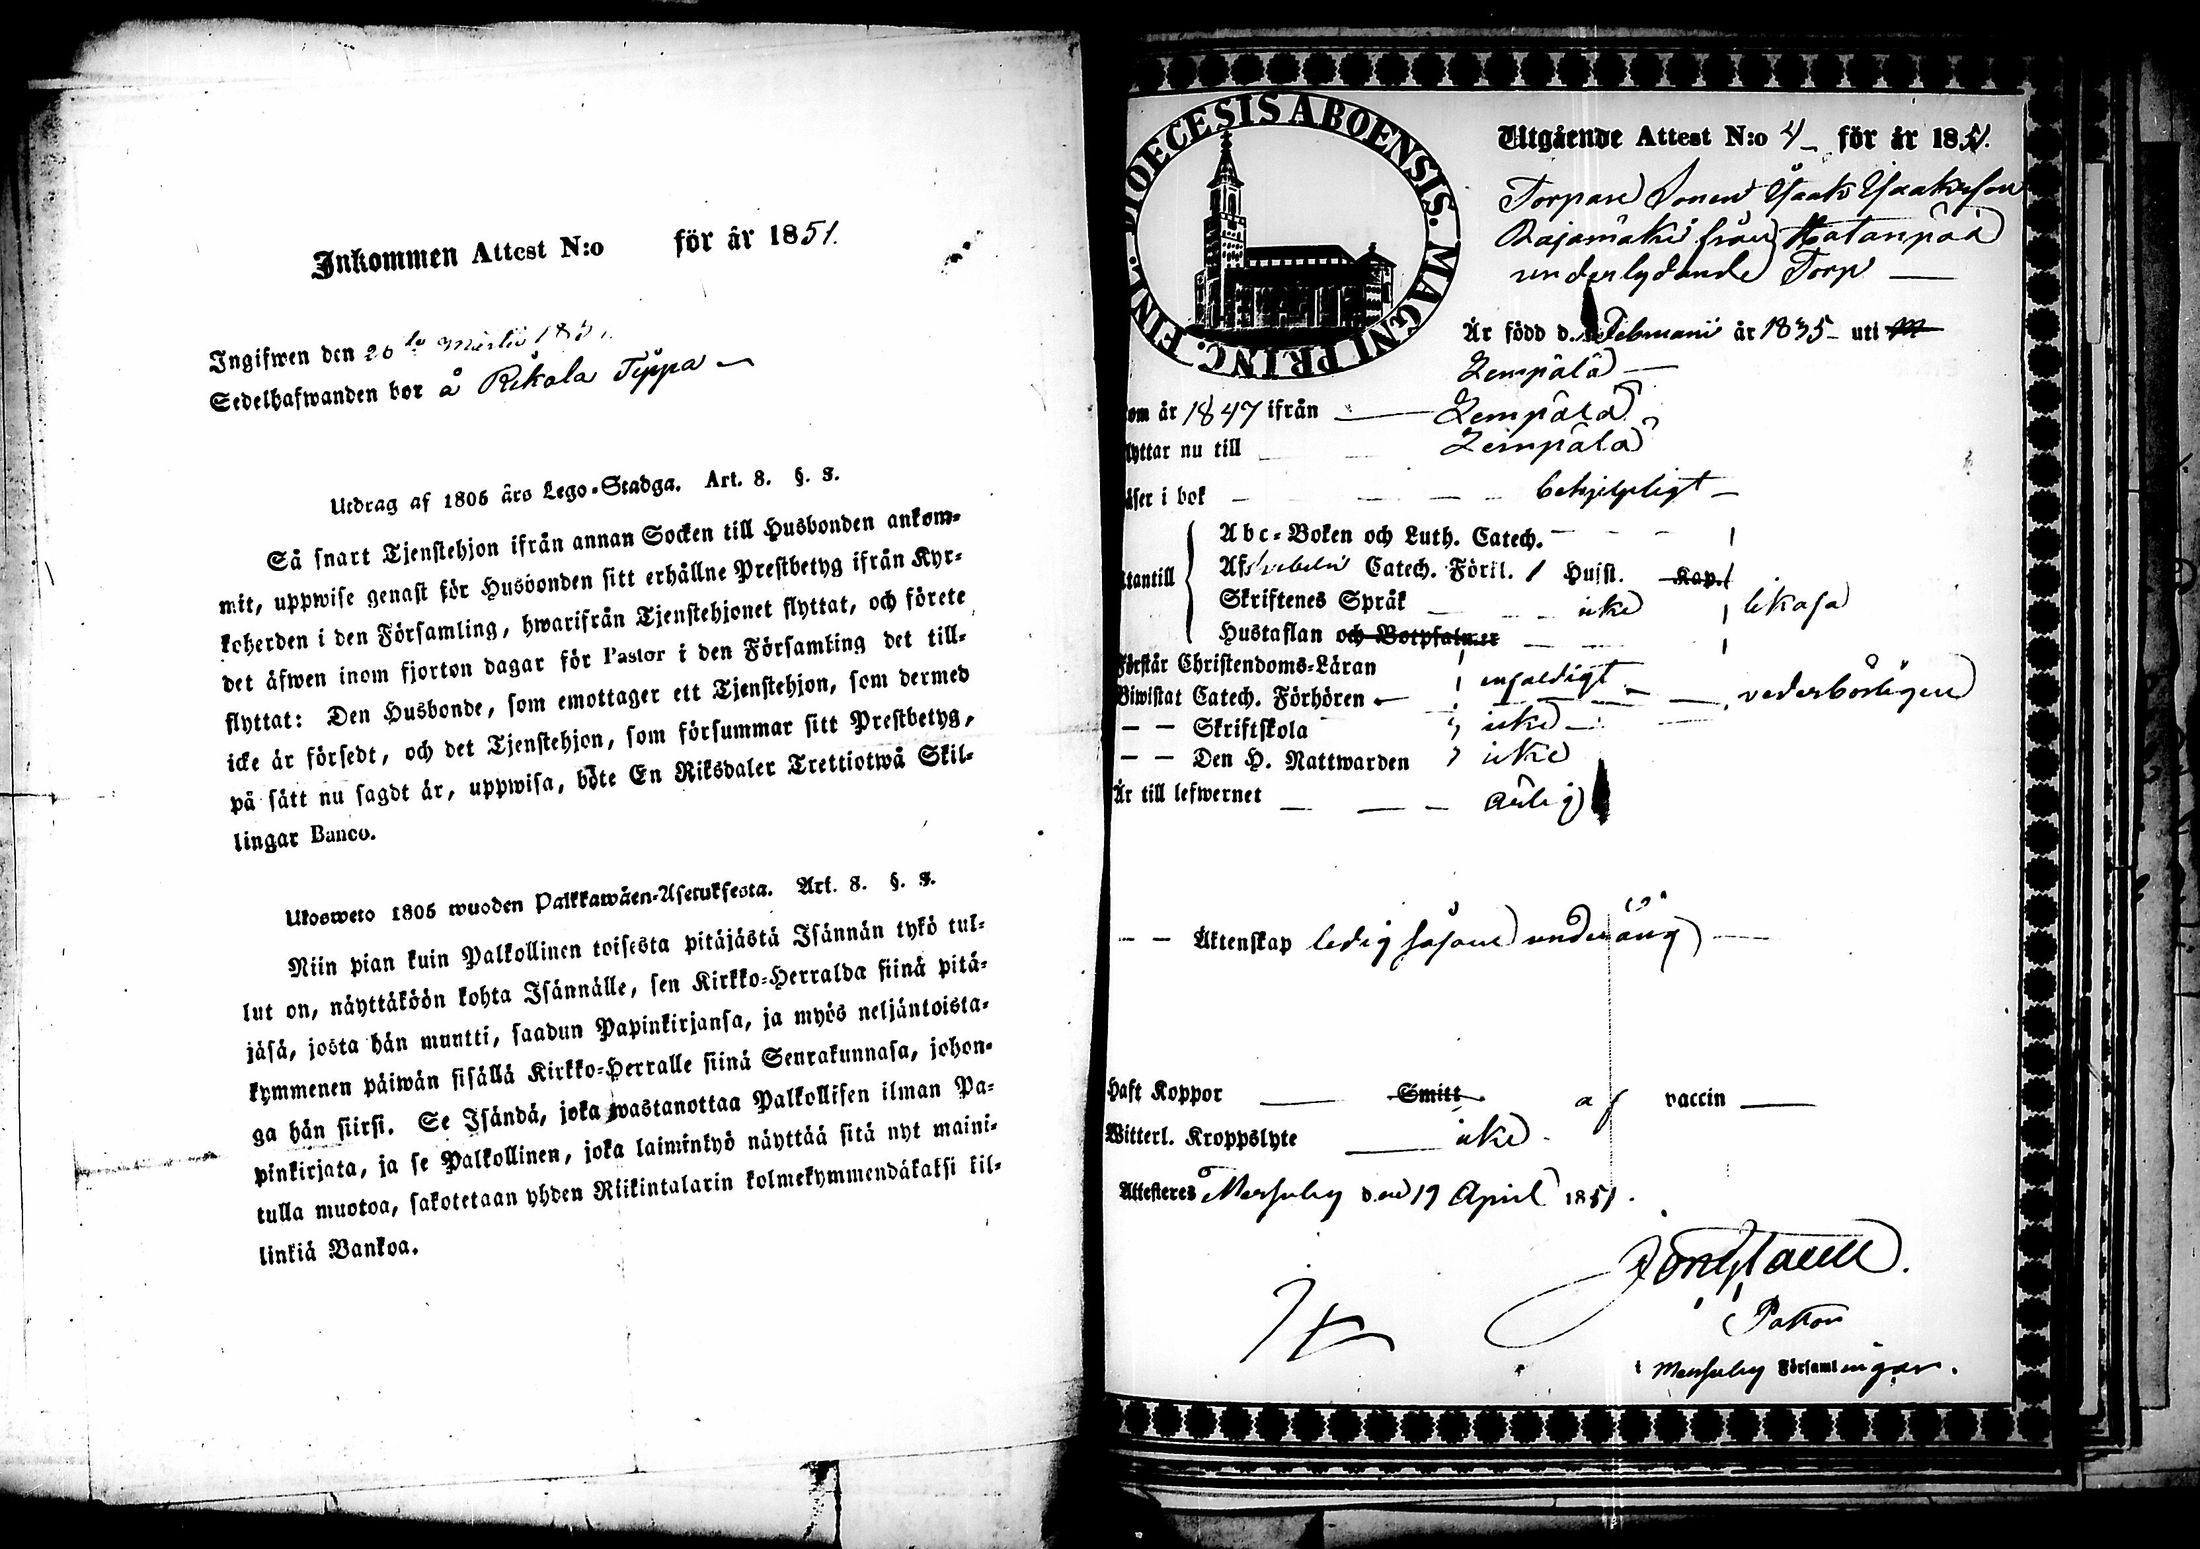 Inkommen Attest N:o för år 1851.
Ingifwen den 26 Martii 185
Sedelhafwanden bor å Rikala Tippa
Utdrag af 1805 års Lego-Stadga. Art. 8. §. 3.
Så snart Tjenstehjon ifrån annan Socken till Husbonden ankom-
mit, uppwise genast för Husbonden sitt erhållne Prestbetyg ifrån Kyr-
koherden i den Församling, hwarifrån Tjenstehjonet flyttat, och förete
det äfwen inom fjorton dagar för Pastor i den Församling det till-
flyttat: Den Husbonde, som emottager ett Tjenstehjon, som dermed
icke är försedt, och det Tjenstehjon, som försummar sitt Prestbetyg,
på sått nu sagdt är, uppwisa, böte En Riksdaler Trettiotwå Skil-
lingar Banco.
Ulosweto 1805 wuoden Palkkawäen-Asetuksesta. Art. 8. §. 3.
Niin pian kuin Palkollinen toisesta pitäjästä Isännän tykö tul-
lut on, näyttäköön kohta Isännälle, sen Kirkko-Herralda siinä pitä-
jäsä, josta hän muutti, saadun Papinkirjansa, ja myös neljäntoista-
kymmenen päiwän sisällä Kirkko-Herralle siinä Seurakunnasa, johon-
ga hän siirsi. Se Isändä, joka wastanottaa Palkollisen ilman Pa-
pinkirjata, ja se Palkollinen, joka laiminlyö näyttää sitä nyt maini-
tulla muotoa, sakotetaan yhden Riikintalarin kolmekymmendäkaksi kil-
linkiä Bankoa.
DIOECESIS ABOENSIS. MAGNI PRINC. FINL.
Utgående Attest N:o 4 för år 1851.
Torpare Sonen Isaak Isaaksson
Rajamäki från Hatanpää
underlydande Torp
Är född d. Februarii år 1835 uti
Lempälä
om år 1847 ifrån Lempälä
lyttar nu till Lempälä
äser i bok behjelpligt
Abc-Boken och Luth. Catech.
Af Svebelii Catech. Förkl. Hufst. Kap.
tantill
Skriftenes Språk icke likasa
Hustaflan och Botpsalmer
Förstår Christendoms-Läran enfaldigt
Biwistat Catech. Förhören vederbörligen
— — Skriftskola icke
— — Den H. Nattwarden icke
Är till lefwernet ärlig
— — Äktenskap ledig såsom underårig
Haft Koppor Smitt af vaccin
Witterl. Kroppslyte icke
Attesteras Messuby den 19 April 1851.
Pastor
i Messuby Församlingar.